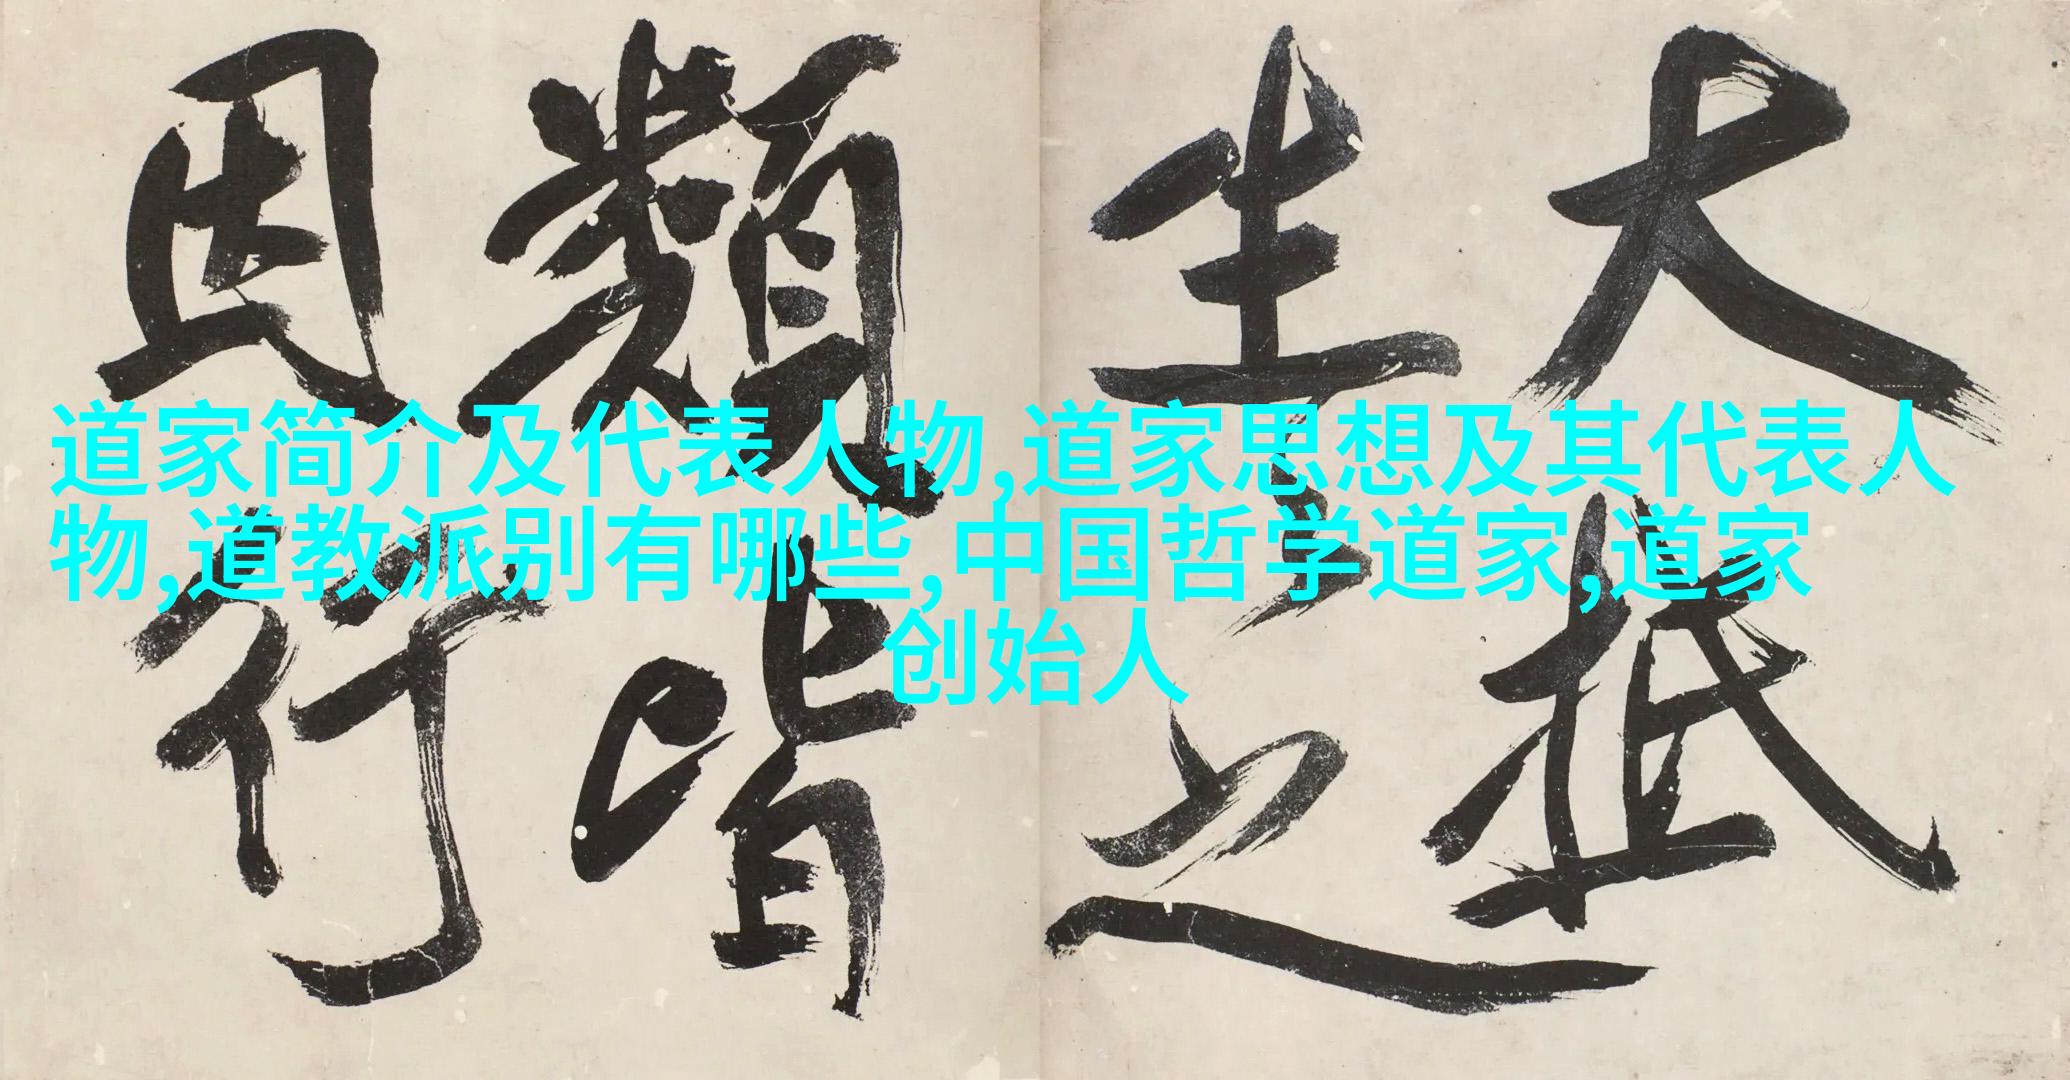 大抵
生々之
類皆
因行
道家简介及代表人物,道家思想及其代表人
物,道教派别有哪些,中国哲学道家,道家
创始人